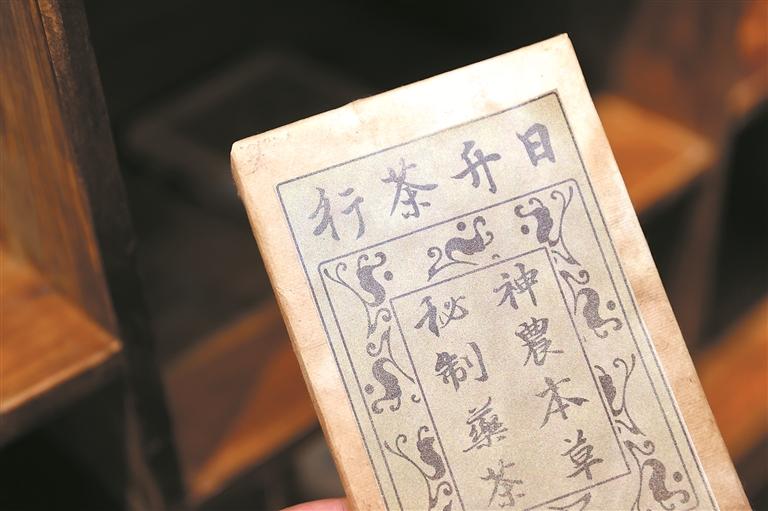 日升茶行
神農本草
秘制藥茶